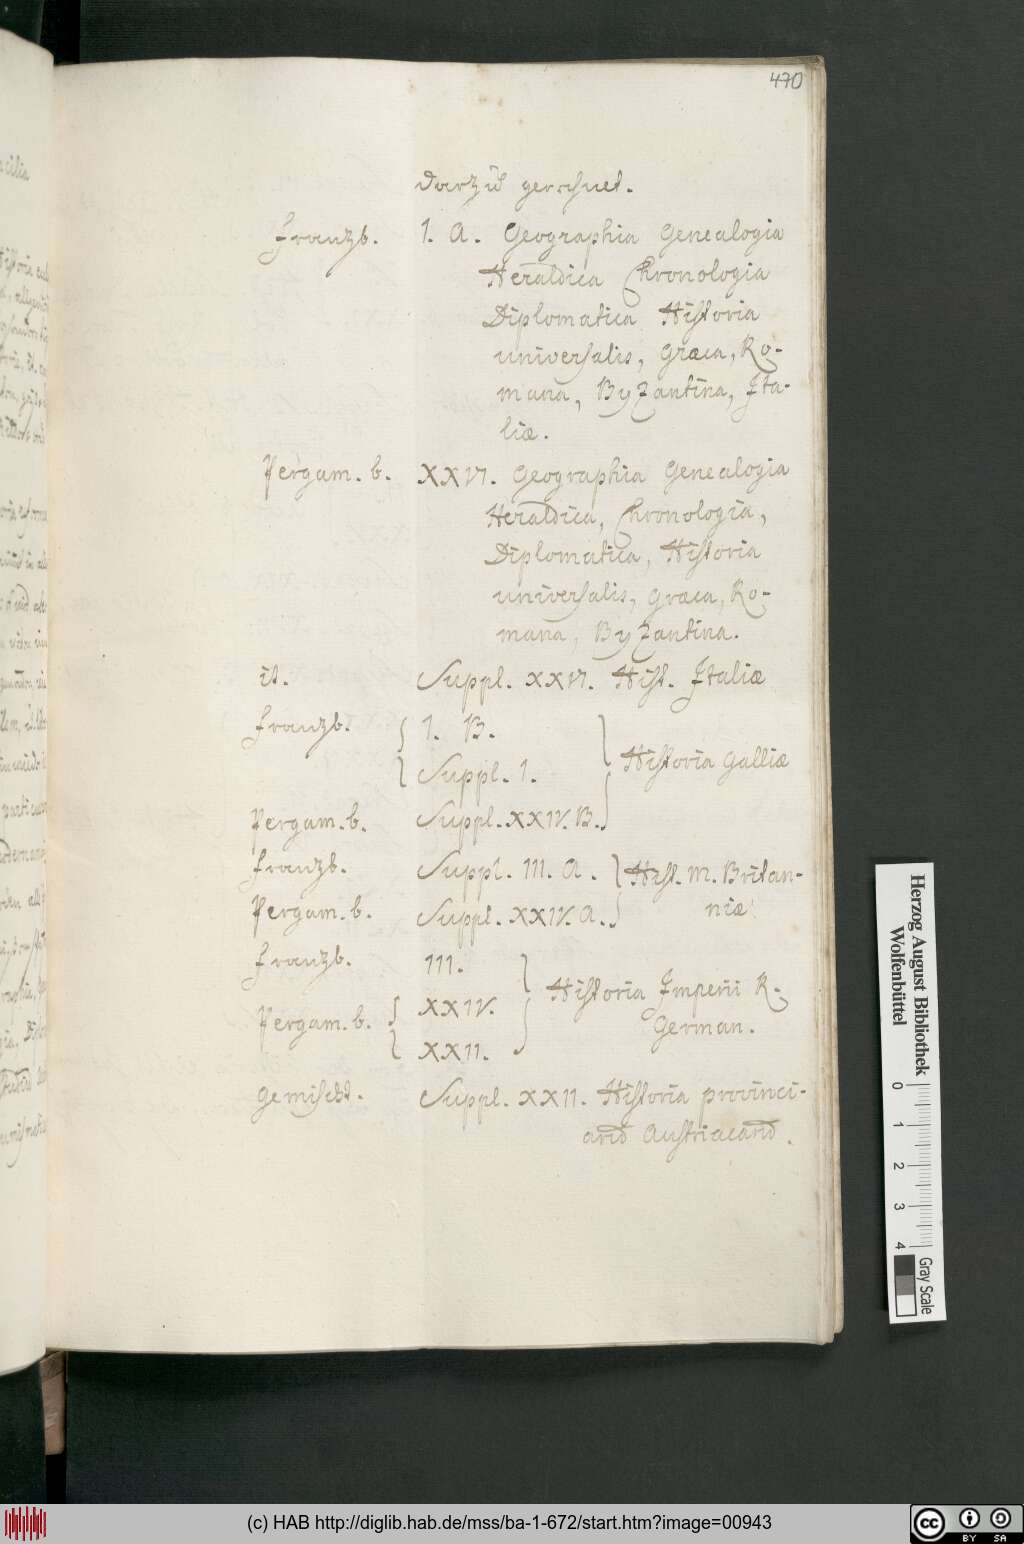 470
darzu gerechnet.
Franzb. I. A. Geographia Genealogia
Heraldica Chronologia
Diplomatica Historia
universalis, Græca, Ro-
mana, Byzantina, Ita-
liæ.
Pergam. b. XXVI. Geographia Genealogia
Heraldica, Chronologia,
Diplomatica, Historia
universalis, Græca, Ro-
mana, Byzantina.
it. Suppl. XXVI. Hist. Italiæ
Franzb. I. B.
Suppl. I. Historia Galliæ
Pergam. b. Suppl. XXIV. B.
Franzb. Suppl. III. A. Hist. M. Britan-
Pergam. b. Suppl. XXIV. A. niæ
Franzb. III. Historia Imperii R.
Pergam. b. XXIV. German.
XXII.
Gemischt. Suppl. XXII. Historia provinci-
arum Austriacarum.
Herzog August Bibliothek
Wolfenbüttel
0 1 2 3 4
Gray Scale
(c) HAB http://diglib.hab.de/mss/ba-1-672/start.htm?image=00943
cc BY SA